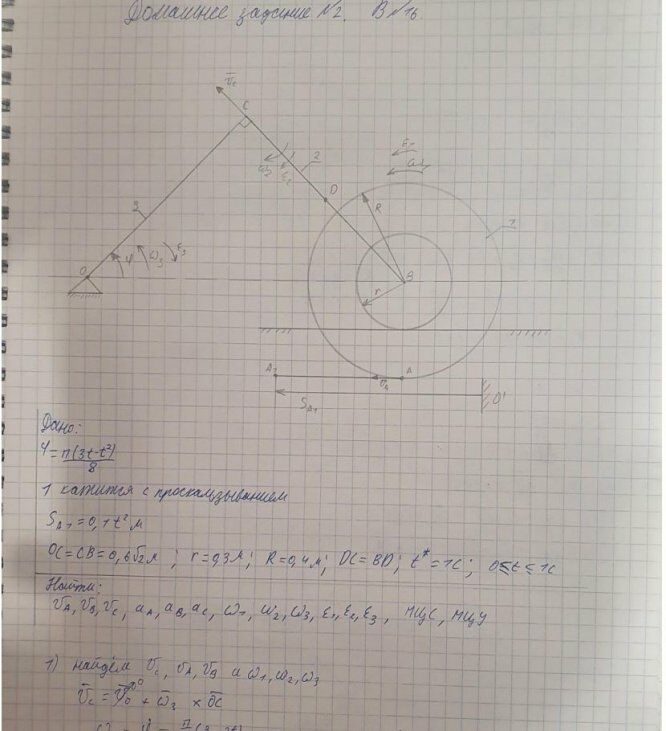 Домашнее задание №2. В №16
v̄c
C
2
ω2 ε2
ε1
ω1
D
R
3
1
O
φ ω3 ε3
B
r
A2 A
v̄A
O'
SA1
Дано:
φ = π(3t-t²)/8
1 катится с проскальзыванием
SA1 = 0,1t² м
OC=CB=0,6√2 м ; r=0,3 м ; R=0,4 м ; DC=BD ; t*=1c ; 0≤t≤1c
Найти:
v̄A, v̄B, v̄C, aA, aB, aC, ω1, ω2, ω3, ε1, ε2, ε3, МЦС, МЦУ
1) найдём v̄c, v̄A, v̄B и ω1, ω2, ω3
v̄c = v̄O⁰ + ω̄3 × O̅C̅